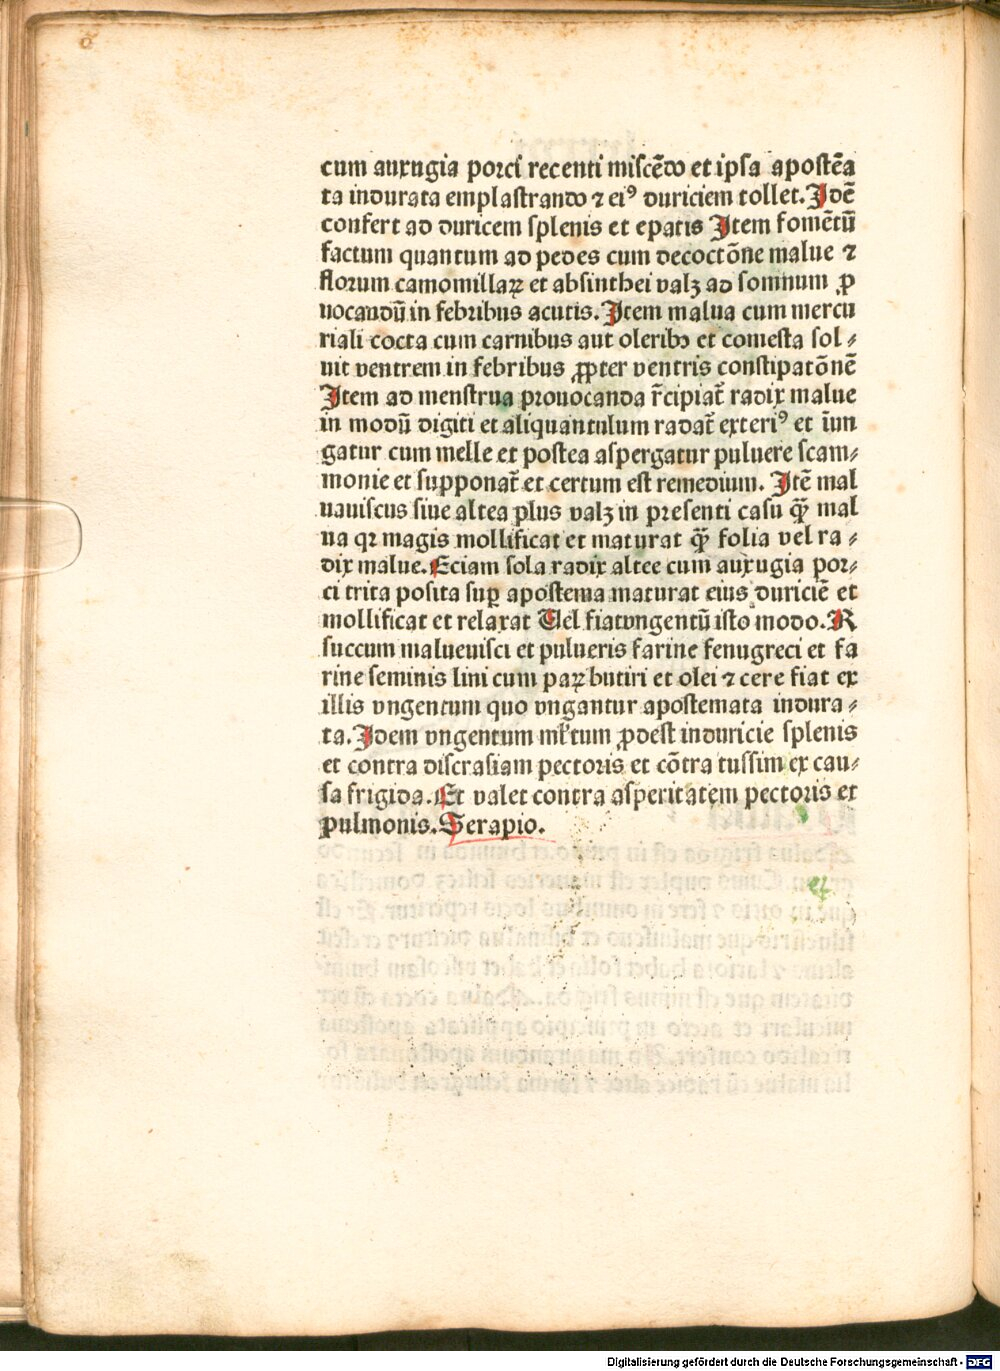 cum auxugia porci recenti miscēdo et ipsa apostēa
ta indurata emplastrando ⁊ ei⁹ duriciem tollet. Idē
confert ad duricem splenis et epatis Item fomētū
factum quantum ad pedes cum decoctōne malue ⁊
florum camomillaꝝ et absinthei valꝫ ad somnum ꝓ
uocandū in febribus acutis. Item malua cum mercu
riali cocta cum carnibus aut oleribꝫ et comesta sol⸗
uit ventrem in febribus ꝓpter ventris constipatōnē
Item ad menstrua prouocanda r̄cipiat̄ radix malue
in modū digiti et aliquantulum radat̄ exteri⁹ et iun
gatur cum melle et postea aspergatur puluere scam⸗
monie et supponat̄ et certum est remedium. Itē mal
uauiscus siue altea plus valꝫ in presenti casu ꝙ̄ mal
ua qꝛ magis mollificat et maturat ꝙ̄ folia vel ra⸗
dix malue. Eciam sola radix altee cum auxugia por⸗
ci trita posita suꝑ apostema maturat eius duriciē et
mollificat et relaxat Vel fiat vngentū isto modo. R
succum malueuisci et pulueris farine fenugreci et fa
rine seminis lini cum paꝝ butiri et olei ⁊ cere fiat ex
illis vngentum quo vngantur apostemata indura⸗
ta. Idem vngentum ml̄tum ꝓdest induricie splenis
et contra discrasiam pectoris et cōtra tussim ex cau⸗
sa frigida. Et valet contra asperitatem pectoris et
pulmonis. Serapio.
Digitalisierung gefördert durch die Deutsche Forschungsgemeinschaft - DFG